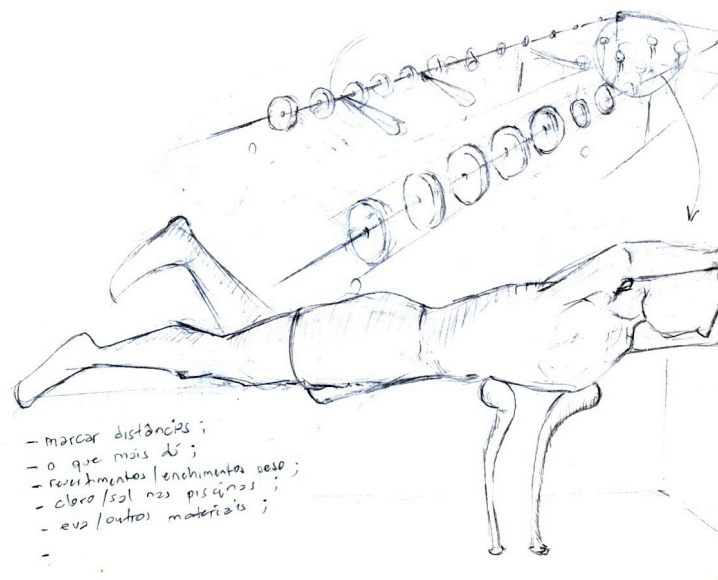 - marcar distâncias ;
- o que mais dói ;
- revestimentos / enchimentos peso ;
- cloro / sal nas piscinas ;
- eva / outros materiais ;
-